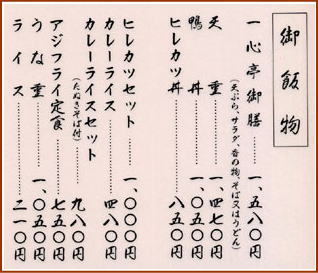 御飯物
一心亭御膳…………一、五八〇円
(天ぷら、サラダ、香の物、そば又はうどん)
天重…………一、四七〇円
鴨丼…………一、〇五〇円
ヒレカツ丼…………八五〇円
ヒレカツセット…………一、〇〇〇円
カレーライス…………四八〇円
カレーライスセット…………九八〇円
(たぬきそば付)
アジフライ定食…………七五〇円
うな重…………一、〇五〇円
ライス…………二一〇円